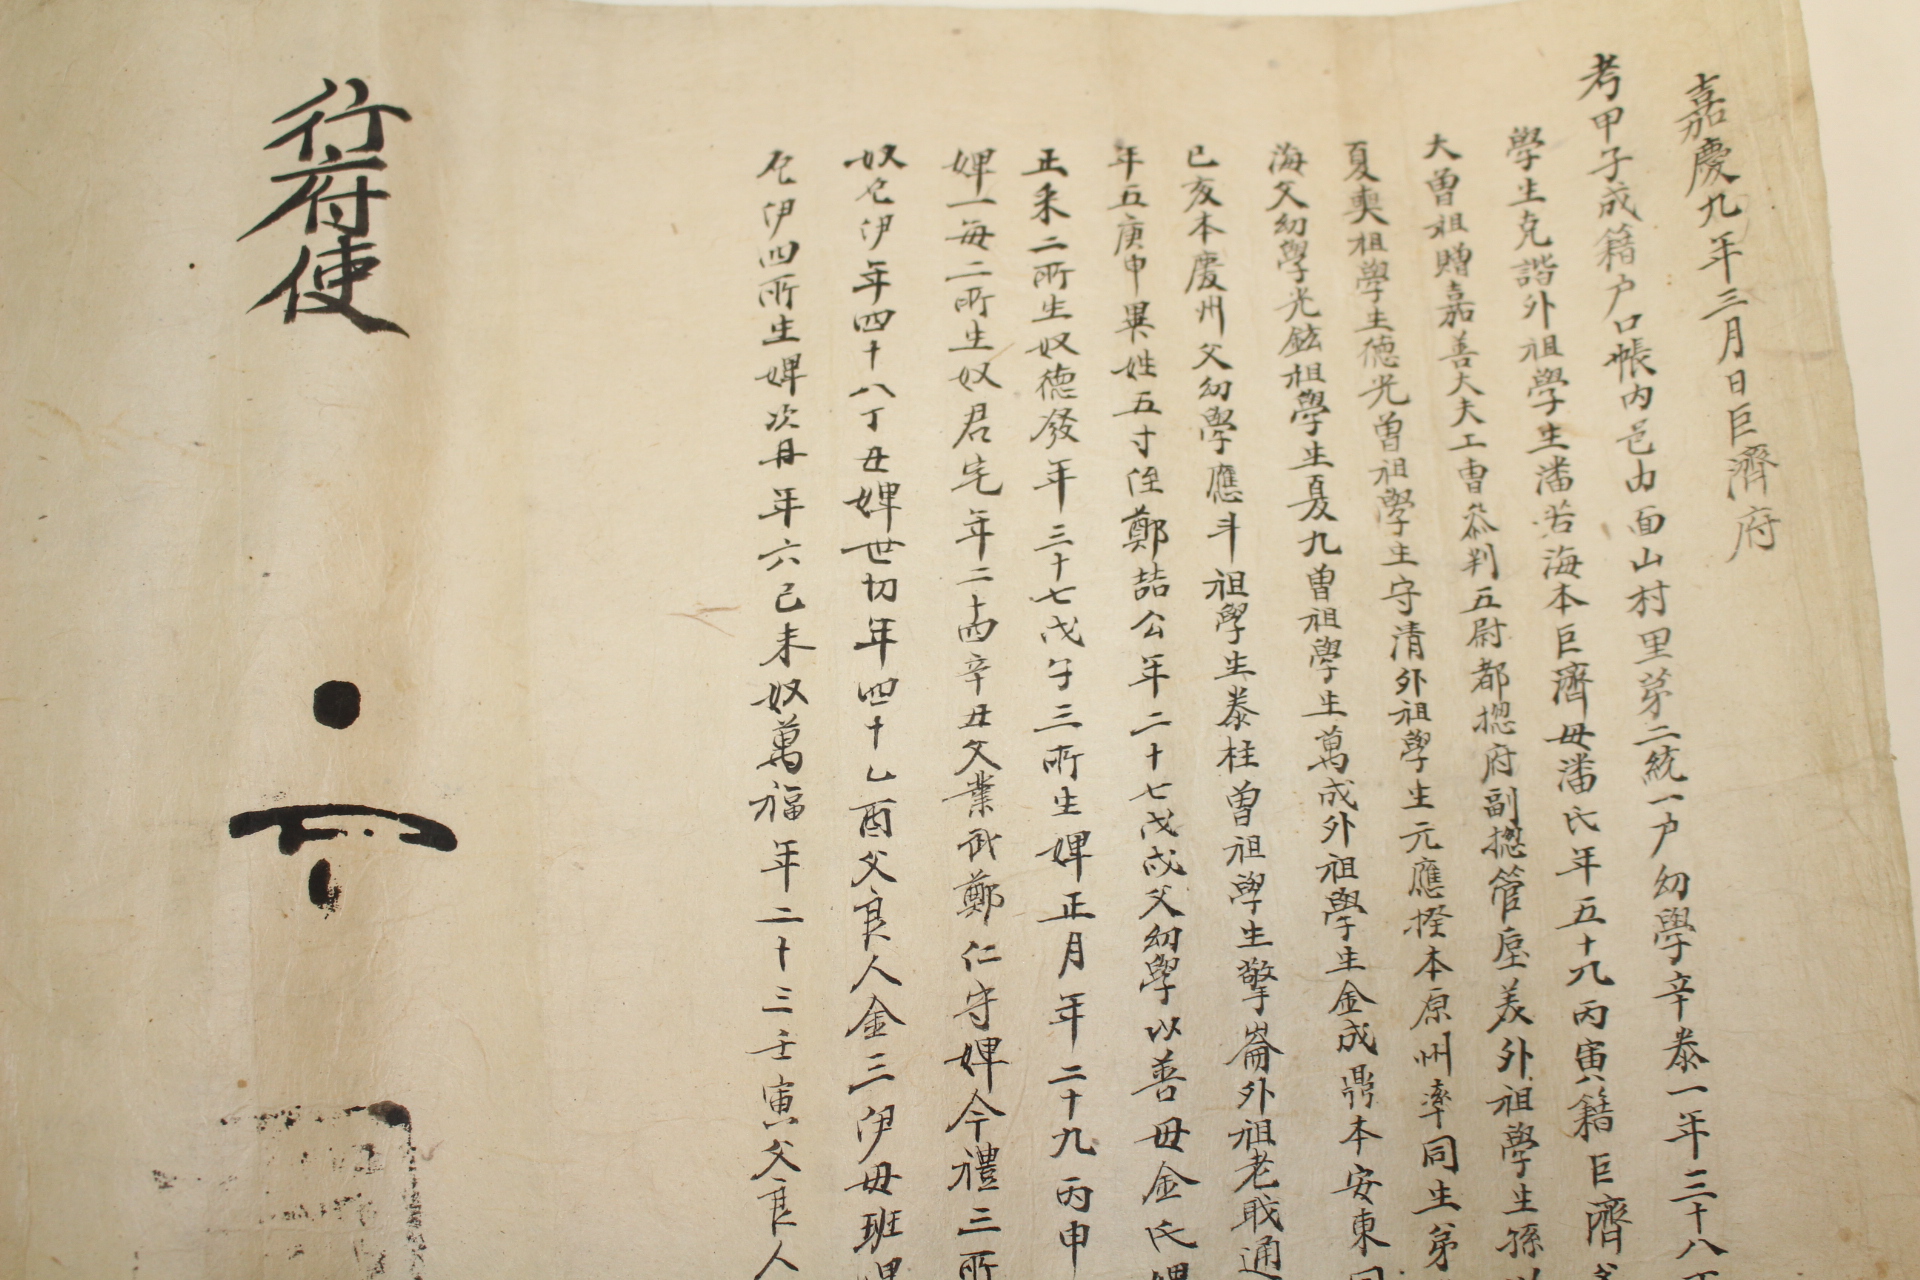 嘉慶九年三月日巨濟府
考甲子成籍戶口帳內邑內面山村里第二統一戶幼學辛泰一年三十八丁
學生克諧外祖學生潘若海本巨濟母潘氏年五十九丙寅籍巨濟
大曾祖贈嘉善大夫工曹參判五尉都摠府副摠管 美外祖學生孫
夏奭祖學生德光曾祖學生守清外祖學生元應 本原州率同生弟
海父幼學光鉉祖學生夏九曾祖學生萬成外祖學生金成鼎本安東
已亥本慶州父幼學應斗祖學生泰柱曾祖學生擎崙外祖老職通
年五庚申異姓五寸侄鄭喆公年二十七戊戌父幼學以善母金氏
正釆二所生奴德發年三十七戊子三所生婢正月年二十九丙申
婢一每二所生奴君宅年二十四辛丑父業武鄭仁守婢今禮三所
奴㐗伊年四十八丁丑婢世切年四十乙酉父良人金三伊母班婢
㐗伊四所生婢次丹年六己未奴萬福年二十三壬寅父良人
行府使